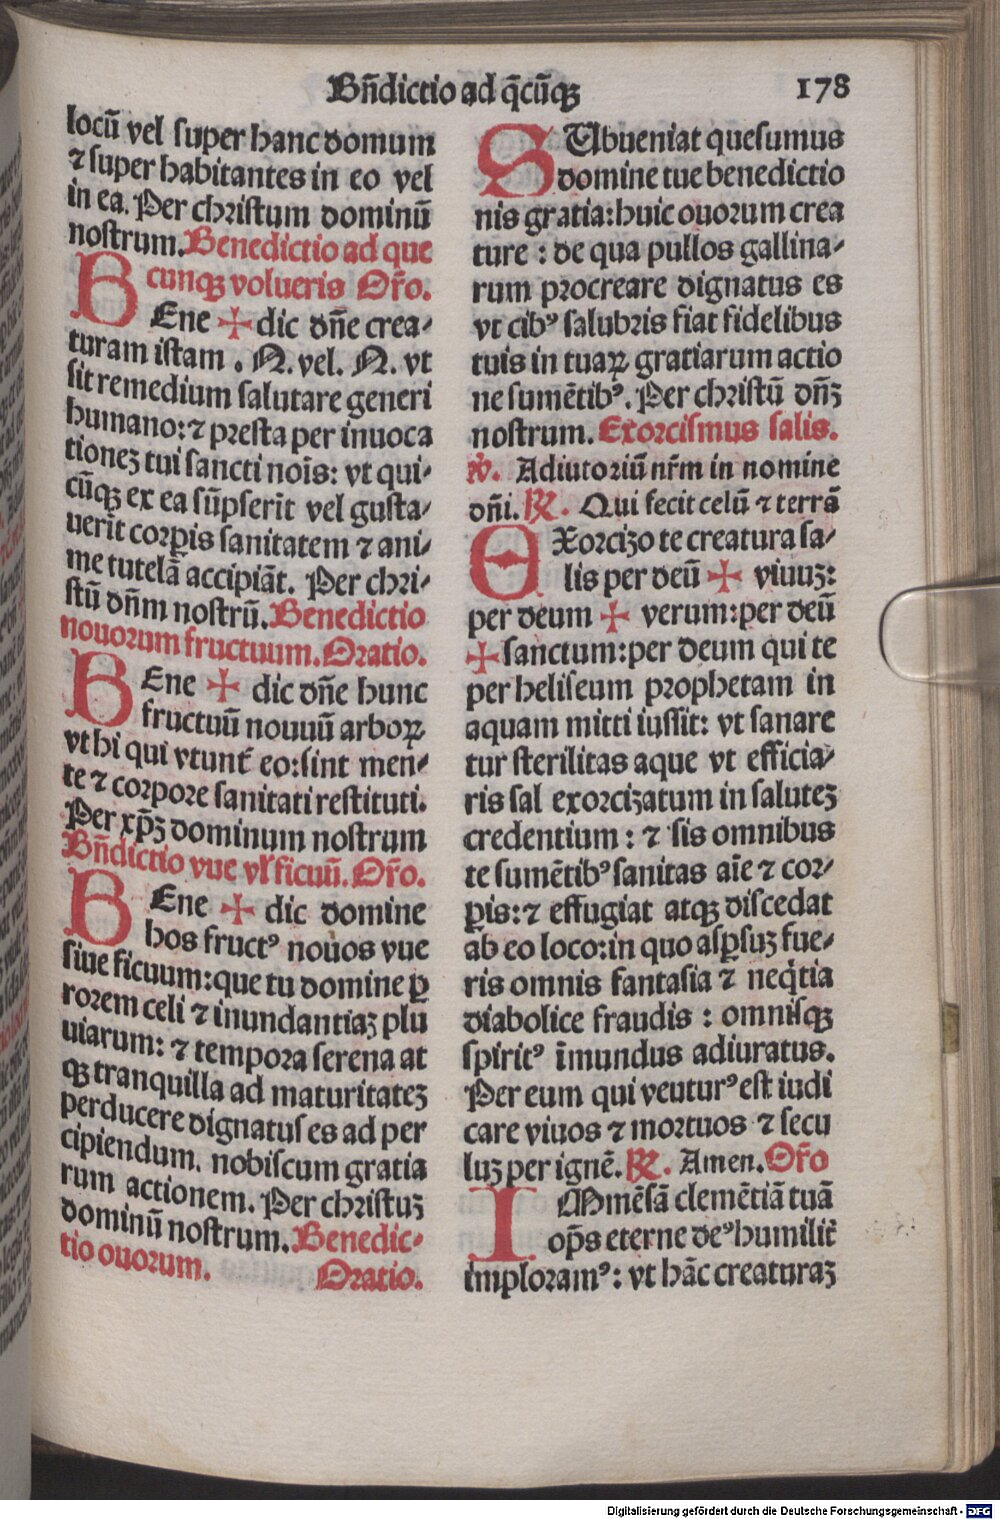 Bñdictio ad q̃cũqꝫ
178
locũ vel super hanc domum
⁊ super habitantes in eo vel
in ea. Per christum dominũ
nostrum. Benedictio ad que
cunqꝫ volueris Or̃o.
BEne ✠ dic dñe crea⸗
turam istam . N. vel. N. vt
sit remedium salutare generi
humano: ⁊ presta per inuoca
tioneꝫ tui sancti nois: vt qui⸗
cũqꝫ ex ea sũpserit vel gusta⸗
uerit corꝑis sanitatem ⁊ ani⸗
me tutelã accipiãt. Per chri⸗
stũ dñm nostrũ. Benedictio
nouorum fructuum. Oratio.
BEne ✠ dic dñe hunc
fructuũ nouuũ arboꝝ
vt hi qui vtunt̃ eo: sint men⸗
te ⁊ corpore sanitati restituti.
Per xp̃ꝫ dominum nostrum
Bñdictio vue vł ficuũ. Or̃o.
BEne ✠ dic domine
hos fructꝰ nouos vue
siue ficuum: que tu domine ꝑ
rorem celi ⁊ inundantiaꝫ plu
uiarum: ⁊ tempora serena at
qꝫ tranquilla ad maturitateꝫ
perducere dignatus es ad per
cipiendum. nobiscum gratia
rum actionem. Per christuꝫ
dominũ nostrum. Benedic⸗
tio ouorum. Oratio.
SUbueniat quesumus
domine tue benedictio
nis gratia: huic ouorum crea
ture : de qua pullos gallina⸗
rum procreare dignatus es
vt cibꝰ salubris fiat fidelibus
tuis in tuaꝝ gratiarum actio
ne sumẽtibꝰ. Per christũ dñꝫ
nostrum. Exorcismus salis.
℣. Adiutoriũ nr̃m in nomine
dñi. ℟. Qui fecit celũ ⁊ terrã
EXorcizo te creatura sa⸗
lis per deũ ✠ viuuꝫ:
per deum ✠ verum: per deũ
✠ sanctum: per deum qui te
per heliseum prophetam in
aquam mitti iussit: vt sanare
tur sterilitas aque vt efficia⸗
ris sal exorcizatum in saluteꝫ
credentium : ⁊ sis omnibus
te sumẽtibꝰ sanitas aĩe ⁊ cor⸗
ꝑis: ⁊ effugiat atqꝫ discedat
ab eo loco: in quo asꝑsuꝫ fue⸗
ris omnis fantasia ⁊ neq̃tia
diabolice fraudis : omnisqꝫ
spiritꝰ ĩmundus adiuratus.
Per eum qui veuturꝰ est iudi
care viuos ⁊ mortuos ⁊ secu
luꝫ per ignẽ. ℟. Amen. Or̃o
IMmẽsã clemẽtiã tuã
op̃s eterne deꝰ humilit̃
imploramꝰ: vt hãc creaturaꝫ
Digitalisierung gefördert durch die Deutsche Forschungsgemeinschaft - DFG